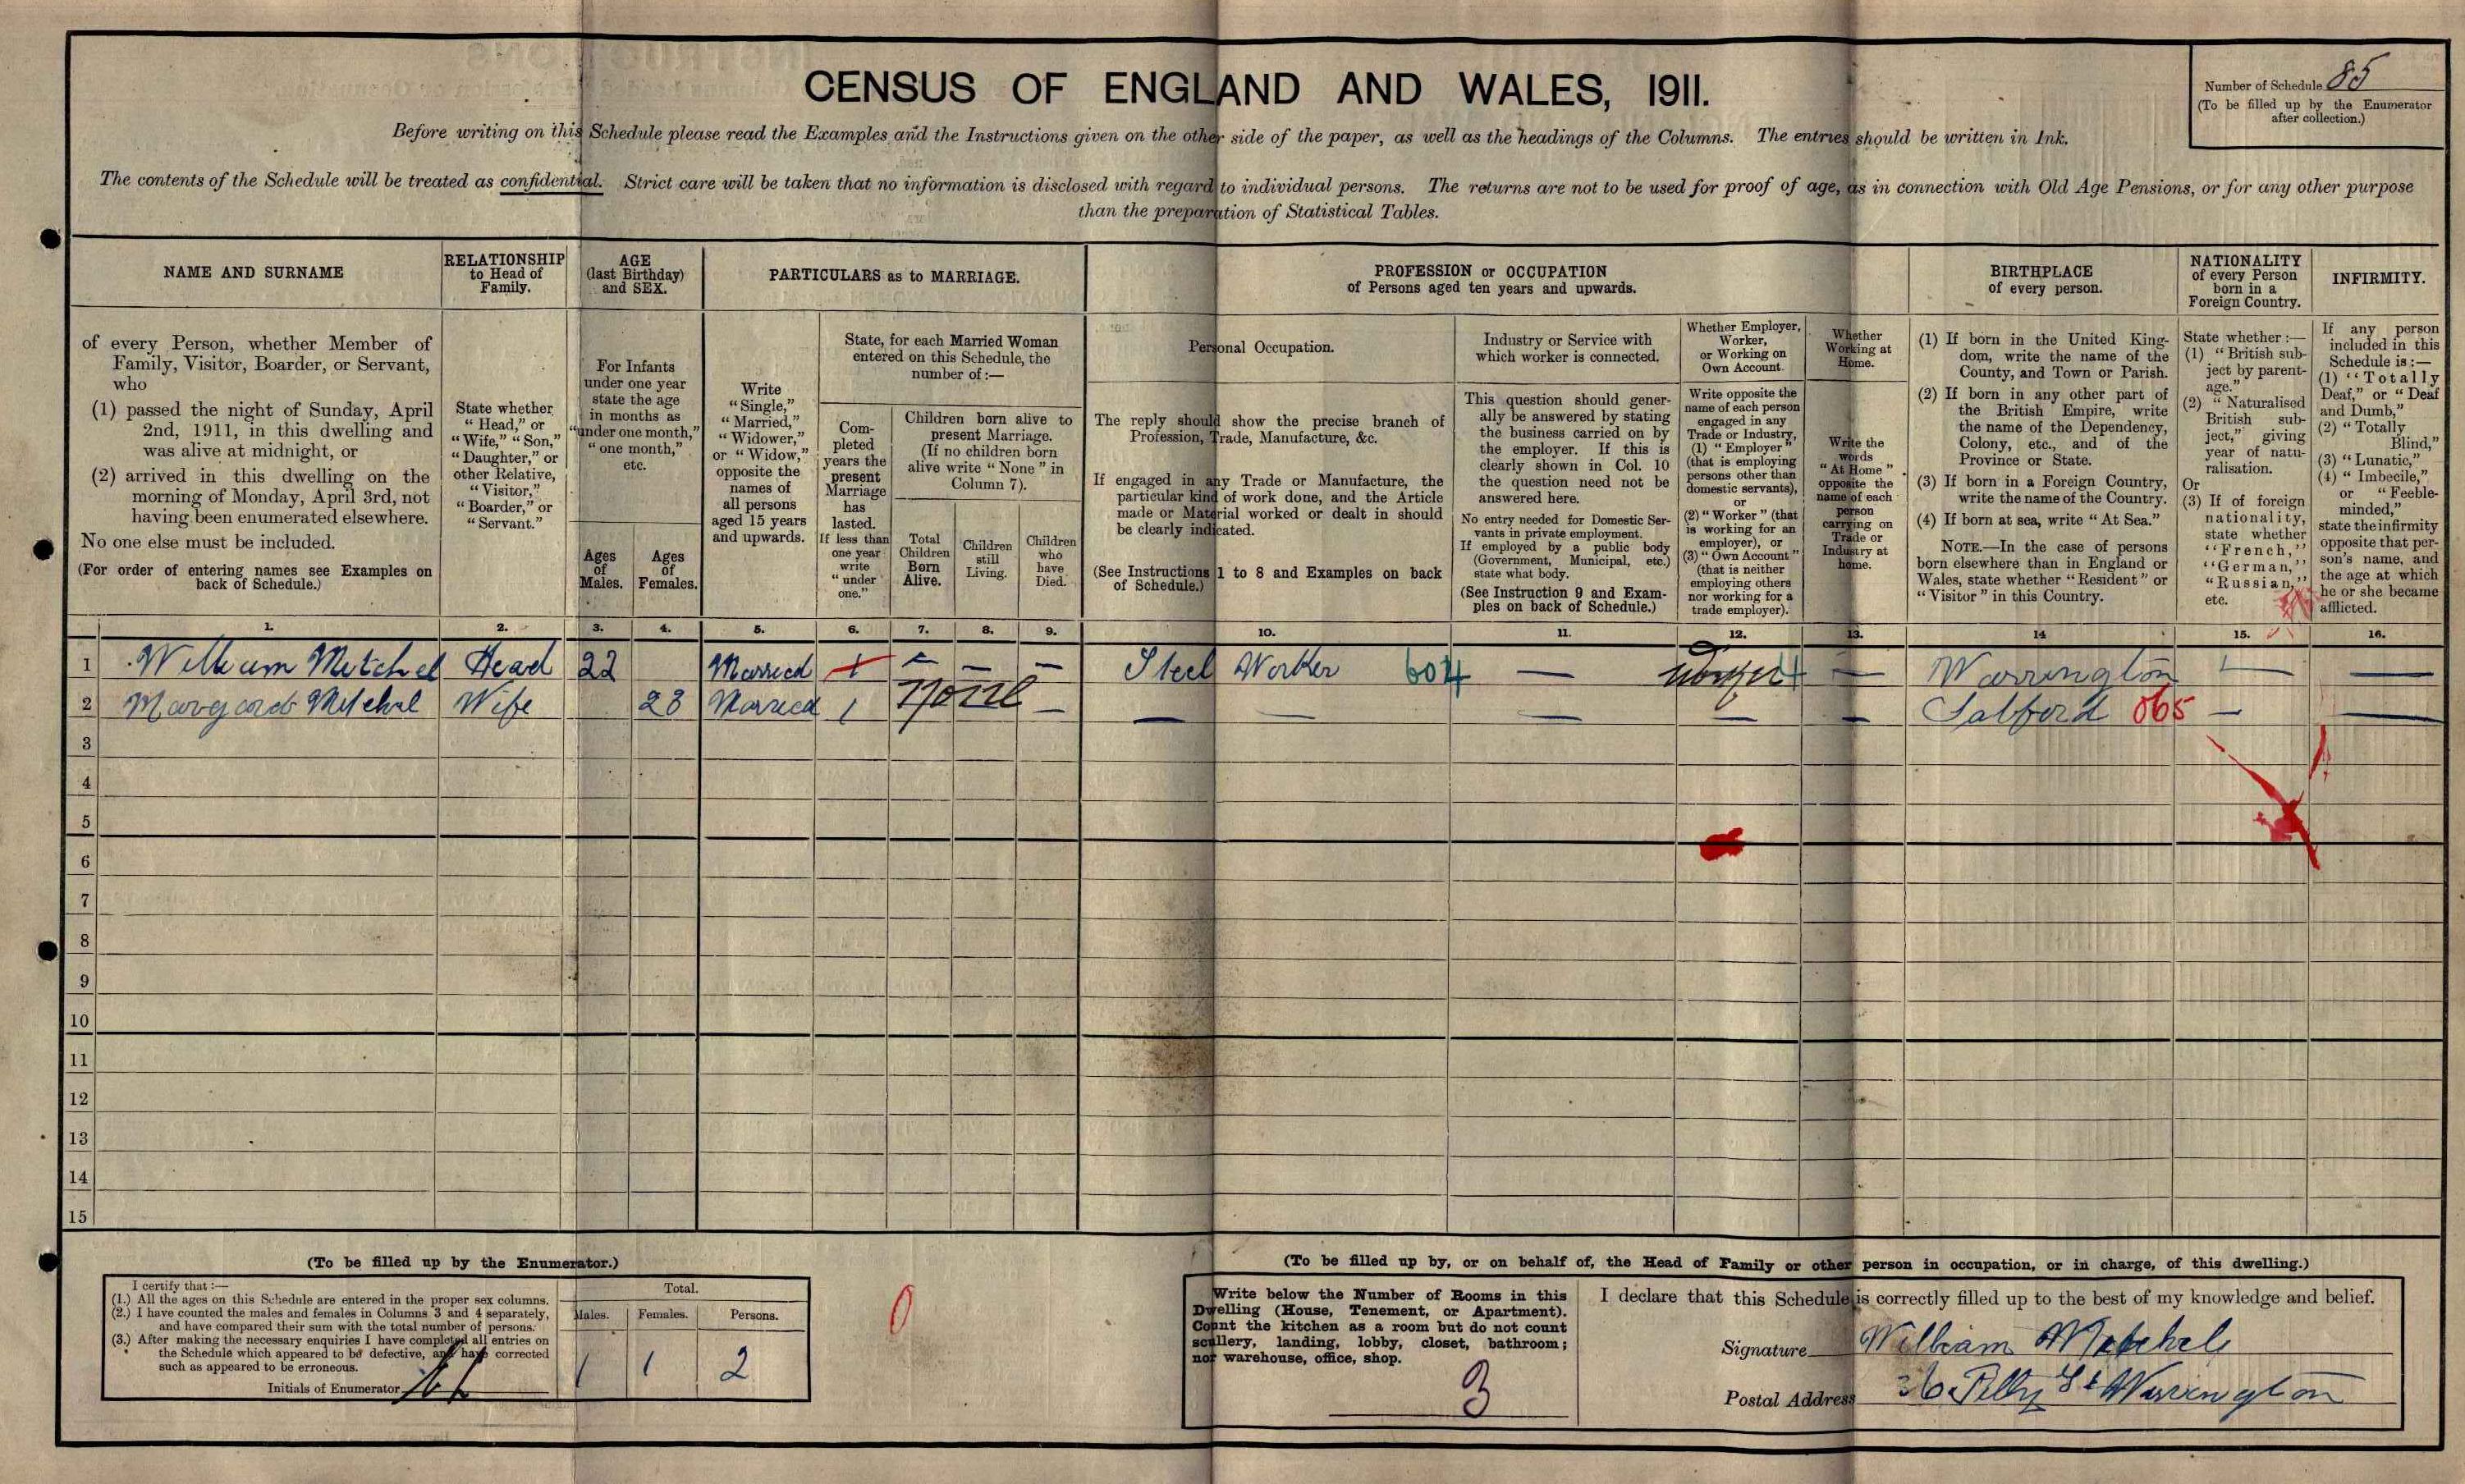 CENSUS OF ENGLAND AND WALES, 1911.
Number of Schedule 85
(To be filled up by the Enumerator
after collection.)
Before writing on this Schedule please read the Examples and the Instructions given on the other side of the paper, as well as the headings of the Columns. The entries should be written in Ink.
The contents of the Schedule will be treated as confidential. Strict care will be taken that no information is disclosed with regard to individual persons. The returns are not to be used for proof of age, as in connection with Old Age Pensions, or for any other purpose
than the preparation of Statistical Tables.
NAME AND SURNAME
of every Person, whether Member of
Family, Visitor, Boarder, or Servant,
who
(1) passed the night of Sunday, April
2nd, 1911, in this dwelling and
was alive at midnight, or
(2) arrived in this dwelling on the
morning of Monday, April 3rd, not
having been enumerated elsewhere.
No one else must be included.
(For order of entering names see Examples on
back of Schedule.)
RELATIONSHIP
to Head of
Family.
State whether
"Head," or
"Wife," "Son,"
"Daughter," or
other Relative,
"Visitor,"
"Boarder," or
"Servant."
AGE
(last Birthday)
and SEX.
For Infants
under one year
state the age
in months as
"under one month,"
"one month,"
etc.
Ages
of
Males.
Ages
of
Females.
PARTICULARS as to MARRIAGE.
Write
"Single,"
"Married,"
"Widower,"
or "Widow,"
opposite the
names of
all persons
aged 15 years
and upwards.
State, for each Married Woman
entered on this Schedule, the
number of:—
Com-
pleted
years the
present
Marriage
has
lasted.
If less than
one year
write
"under
one."
Children born alive to
present Marriage.
(If no children born
alive write "None" in
Column 7).
Total
Children
Born
Alive.
Children
still
Living.
Children
who
have
Died.
PROFESSION or OCCUPATION
of Persons aged ten years and upwards.
Personal Occupation.
The reply should show the precise branch of
Profession, Trade, Manufacture, &c.
If engaged in any Trade or Manufacture, the
particular kind of work done, and the Article
made or Material worked or dealt in should
be clearly indicated.
(See Instructions 1 to 8 and Examples on back
of Schedule.)
Industry or Service with
which worker is connected.
This question should gener-
ally be answered by stating
the business carried on by
the employer. If this is
clearly shown in Col. 10
the question need not be
answered here.
No entry needed for Domestic Ser-
vants in private employment.
If employed by a public body
(Government, Municipal, etc.)
state what body.
(See Instruction 9 and Exam-
ples on back of Schedule.)
Whether Employer,
Worker,
or Working on
Own Account.
Write opposite the
name of each person
engaged in any
Trade or Industry,
(1) "Employer"
(that is employing
persons other than
domestic servants),
or
(2) "Worker" (that
is working for an
employer), or
(3) "Own Account"
(that is neither
employing others
nor working for a
trade employer).
Whether
Working at
Home.
Write the
words
"At Home"
opposite the
name of each
person
carrying on
Trade or
Industry at
home.
BIRTHPLACE
of every person.
(1) If born in the United King-
dom, write the name of the
County, and Town or Parish.
(2) If born in any other part of
the British Empire, write
the name of the Dependency,
Colony, etc., and of the
Province or State.
(3) If born in a Foreign Country,
write the name of the Country.
(4) If born at sea, write "At Sea."
NOTE.—In the case of persons
born elsewhere than in England or
Wales, state whether "Resident" or
"Visitor" in this Country.
NATIONALITY
of every Person
born in a
Foreign Country.
State whether:—
(1) "British sub-
ject by parent-
age."
(2) "Naturalised
British sub-
ject," giving
year of natu-
ralisation.
Or
(3) If of foreign
nationality,
state whether
"French,"
"German,"
"Russian,"
etc.
INFIRMITY.
If any person
included in this
Schedule is:—
(1) "Totally
Deaf," or "Deaf
and Dumb,"
(2) "Totally
Blind,"
(3) "Lunatic,"
(4) "Imbecile,"
or "Feeble-
minded,"
state the infirmity
opposite that per-
son's name, and
the age at which
he or she became
afflicted.
1. 2. 3. 4. 5. 6. 7. 8. 9. 10. 11. 12. 13. 14 15. 16.
1 William Mitchel Head 22 Married 1 — — — Steel Worker 604 — Worker 4 — Warrington — —
2 Margaret Mitchel Wife 23 Married 1 None — — — — — — Salford 065 — —
3
4
5
6
7
8
9
10
11
12
13
14
15
(To be filled up by the Enumerator.)
I certify that:—
(1.) All the ages on this Schedule are entered in the proper sex columns.
(2.) I have counted the males and females in Columns 3 and 4 separately,
and have compared their sum with the total number of persons.
(3.) After making the necessary enquiries I have completed all entries on
the Schedule which appeared to be defective, and have corrected
such as appeared to be erroneous.
Initials of Enumerator
Total.
Males. Females. Persons.
1 1 2
0
(To be filled up by, or on behalf of, the Head of Family or other person in occupation, or in charge, of this dwelling.)
Write below the Number of Rooms in this
Dwelling (House, Tenement, or Apartment).
Count the kitchen as a room but do not count
scullery, landing, lobby, closet, bathroom;
nor warehouse, office, shop.
3
I declare that this Schedule is correctly filled up to the best of my knowledge and belief.
Signature William Mitchele
Postal Address St Warrington